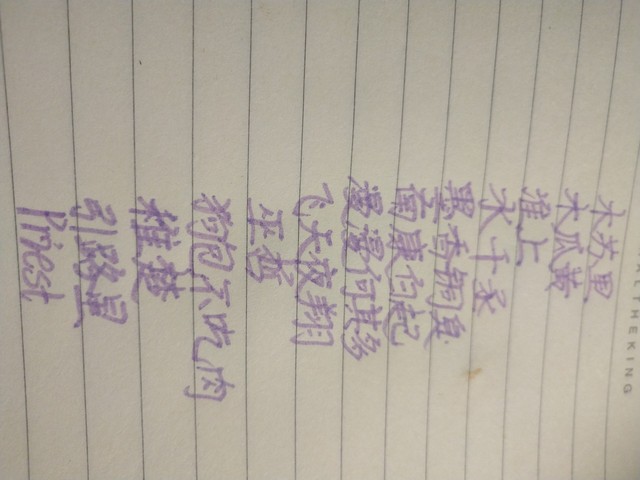 THEKING
木苏里
木瓜黄
淮上
水千丞
墨香铜臭
南康白起
漫漫何其多
飞天夜翔
巫哲
狗包不吃肉
稚楚
引路星
Priest